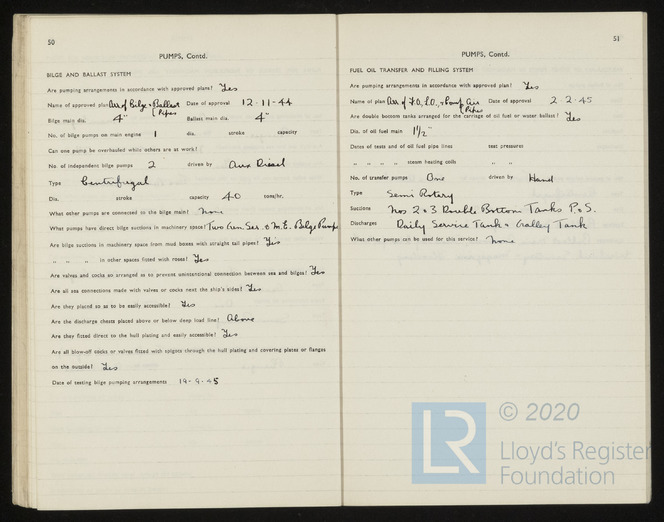 50
PUMPS, Contd.
BILGE AND BALLAST SYSTEM
Are pumping arrangements in accordance with approved plans? Yes
Name of approved plan Arr of Bilge & Ballast Pipes Date of approval 12-11-44
Bilge main dia. 4" Ballast main dia. 4"
No. of bilge pumps on main engine 1 dia. stroke capacity
Can one pump be overhauled while others are at work?
No. of independent bilge pumps 2 driven by Aux Diesel
Type Centrifugal
Dia. stroke capacity 40 tons/hr.
What other pumps are connected to the bilge main? None
What pumps have direct bilge suctions in machinery space? Two Gen. Ser. & M.E. Bilge Pump
Are bilge suctions in machinery space from mud boxes with straight tail pipes? Yes
" " " in other spaces fitted with roses? Yes
Are valves and cocks so arranged as to prevent unintentional connection between sea and bilges? Yes
Are all sea connections made with valves or cocks next the ship's sides? Yes
Are they placed so as to be easily accessible? Yes
Are the discharge chests placed above or below deep load line? Above
Are they fitted direct to the hull plating and easily accessible? Yes
Are all blow-off cocks or valves fitted with spigots through the hull plating and covering plates or flanges
on the outside? Yes
Date of testing bilge pumping arrangements 19-9-45
51
PUMPS, Contd.
FUEL OIL TRANSFER AND FILLING SYSTEM
Are pumping arrangements in accordance with approved plan? Yes
Name of plan Arr of F.O, L.O, & Pump Arr Pipes Date of approval 2-2-45
Are double bottom tanks arranged for the carriage of oil fuel or water ballast? Yes
Dia. of oil fuel main 1½"
Dates of tests and of oil fuel pipe lines test pressures
" " " " steam heating coils " "
No. of transfer pumps One driven by Hand
Type Semi Rotary
Suctions Nos 2 & 3 Double Bottom Tanks P & S.
Discharges Daily Service Tank & Galley Tank
What other pumps can be used for this service? None
LR
© 2020
Lloyd's Register
Foundation